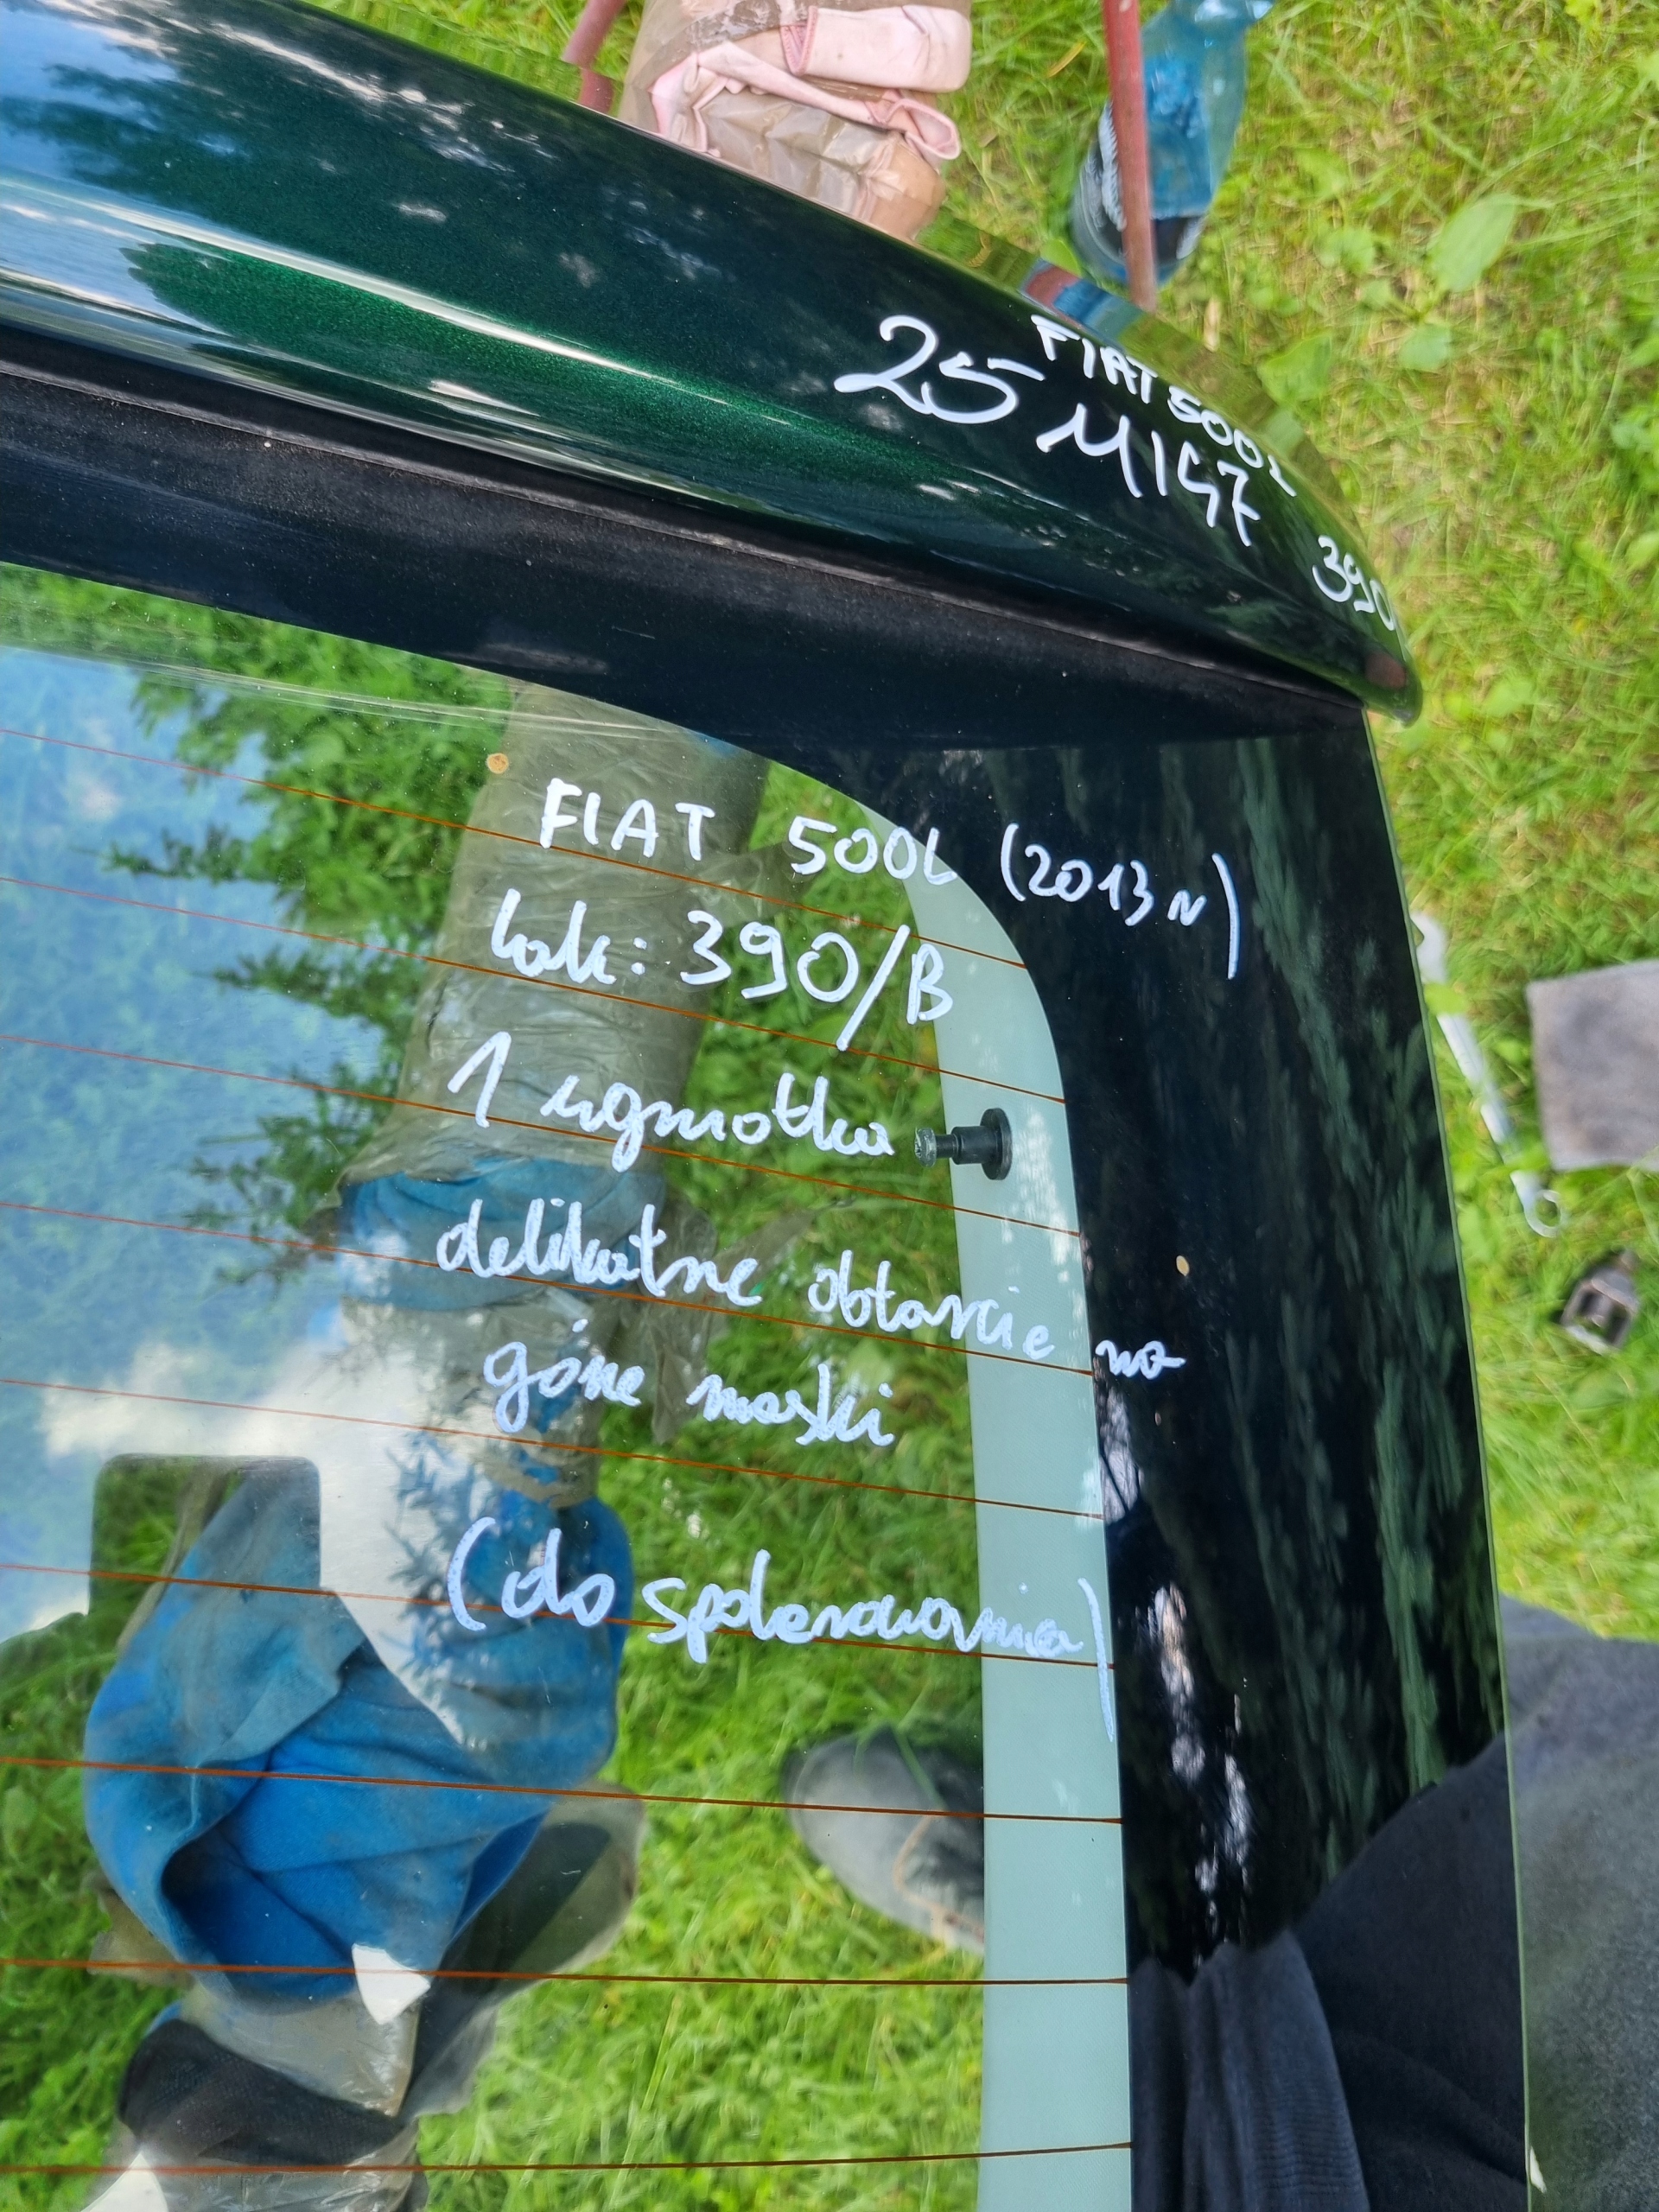 FIAT 500L
25 M147
390
FIAT 500L (2013r)
lak: 390/B
1 wgniotka
delikatne obtarcie na
górze maski
(do spolerowania)